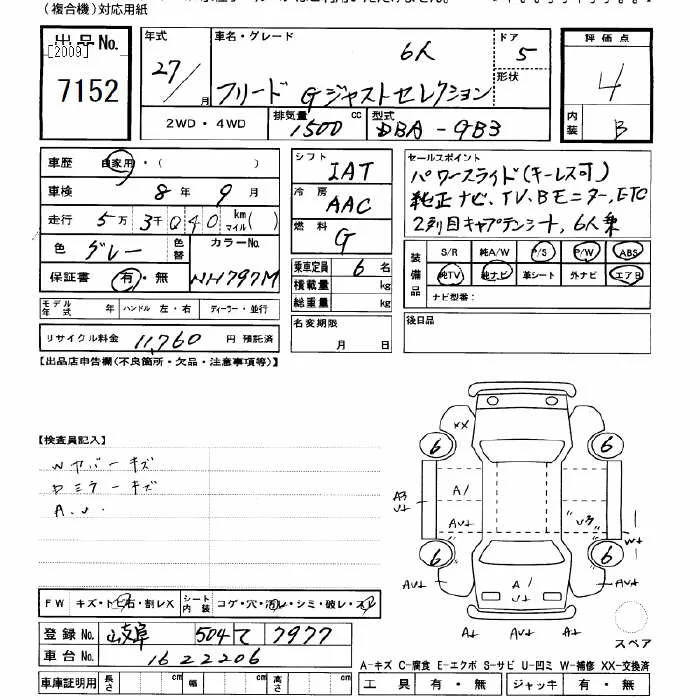 (複合機)対応用紙
出品No.
[2009]
7152
年式
27/
月
車名・グレード
6人
フリード Gジャストセレクション
ドア
5
形状
評価点
4
内装
B
2WD・4WD
排気量
1500 cc
型式
DBA-GB3
車歴 自家用・( )
車検 8年 9月
走行 5万 3千 040 km マイル( )
色 グレー 色替 カラーNo.
保証書 有・無 NH797M
モデル年式 年 ハンドル 左・右 ディーラー・並行
リサイクル料金 11,760 円 預託済
シフト IAT
冷房 AAC
燃料 G
乗車定員 6 名
積載量 kg
総重量 kg
名変期限
月 日
セールスポイント
パワースライド(キーレス可)
純正ナビ、TV、Bモニター、ETC
2列目キャプテンシート、6人乗
装備品
S/R 純A/W P/S P/W ABS
純TV 純ナビ 革シート 外ナビ エアB
ナビ型番:
後日品
【出品店申告欄(不良箇所・欠品・注意事項等)】
【検査員記入】
Wカバーキズ
Dミラーキズ
A.U.
XX
6
6
A/
A3
U+
AU+
U3
W+
6
6
AU+
A/
U+
AU+
A+
AU+
A+
スペア
FW キズ・トビ石・割レX シート内装 コゲ・穴・汚レ・シミ・破レ・スレ
登録No. 岐阜 504 て 7977
車台No. 1622206
車庫証明用 長さ cm 幅 cm 高さ cm
A-キズ C-腐食 E-エクボ S-サビ U-凹ミ W-補修 XX-交換済
工具 有・無 ジャッキ 有・無